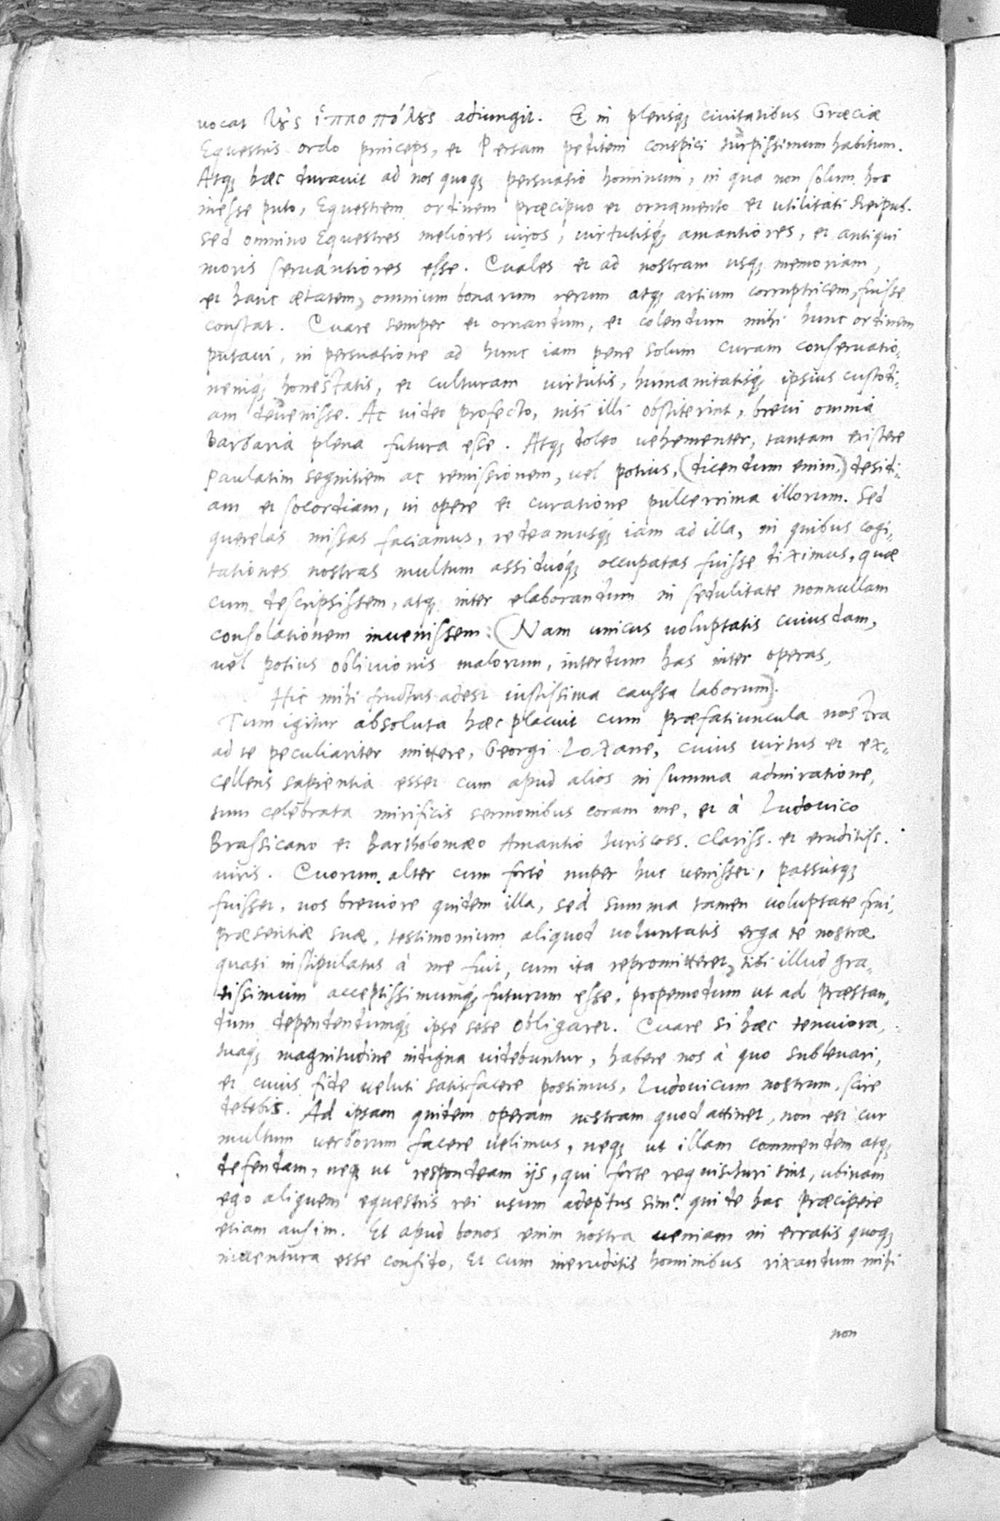 vocat τοὺς ἱπποπόλους adiungit. Et in plerisq; civitatibus Græciæ
Equestris ordo princeps, et Persam peditem conspici turpissimum habitum.
Atq; hæc duravit ad nos quoq; persuasio hominum, in qua non solum hoc
inesse puto, Equestrem ordinem præcipuo et ornamento et utilitati Reipub.
sed omnino Equestres meliores viros, virtutisq; amantiores, et antiqui
moris servantiores esse. Quales et ad nostram usq; memoriam,
et hanc ætatem, omnium bonarum rerum atq; artium corruptricem, fuisse
constat. Quare semper et ornandum, et colendum mihi hunc ordinem
putavi, in persuasione ad hunc iam pene solum curam conservatio,
nemq; honestatis, et culturam virtutis, humanitatisq; ipsius custodi,
am devenisse. Ac video profecto, nisi illi obstiterint, brevi omnia
barbaria plena futura esse. Atq; doleo vehementer, tantam existere
paulatim segnitiem ac remissionem, vel potius, (dicendum enim,) desidi,
am et socordiam, in opere et curatione pulcerrima illorum. Sed
querelas missas faciamus, redeamusq; iam ad illa, in quibus cogi,
tationes nostras multum assiduoq; occupatas fuisse diximus, quæ
cum descripsissem, atq; inter elaborandum in sedulitate nonnullam
consolationem invenissem: (Nam unicus voluptatis cuiusdam,
vel potius oblivionis malorum, interdum has inter operas,
Hic mihi fructus adest iustissima caussa laborum).
Tum igitur absoluta hæc placuit cum præfatiuncula nostra
ad te peculiariter mittere, Georgi Loxane, cuius virtus et ex,
cellens sapientia esset cum apud alios in summa admiratione,
tum celebrata mirificis sermonibus coram me, et à Ludovico
Brassicano et Bartholomæo Amantio Iuriscoss. Clariss. et eruditiss.
viris. Quorum alter cum fortè nuper huc venisset, passusq;
fuisset, nos breviore quidem illa, sed summa tamen voluptate frui,
præsentiæ suæ, testimonium aliquod voluntatis erga te nostræ
quasi instipulatus à me fuit, cum ita repromitteret, tibi illud gra,
tissimum acceptissimumq; futurum esse, propemodum ut ad præstan,
dum, dependendumq; ipse sese obligaret. Quare si hæc tenuiora,
tuaq; magnitudine indigna videbuntur, habere nos à quo sublevari,
et cuius fide veluti satisfacere possimus, Ludovicum nostrum, scire
debebis. Ad ipsam quidem operam nostram quod attinet, non est cur
multum verborum facere velimus, neq; ut illam commendem atq;
defendam, neq; ut respondeam ijs, qui forte requisituri sint, ubinam
ego aliquem equestris rei usum adeptus sim? qui de hac præcipere
etiam ausim. Et apud bonos enim nostra veniam in erratis quoq;
inventura esse confido, Et cum ineruditis hominibus rixandum mihi
non